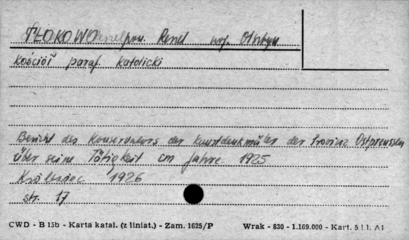 TŁOKOWO pow. Reszel woj. Olsztyn
Kościół paraf. katolicki
Bericht des Konservators der Kunstdenkmäler der Provinz Ostpreussen
über seine Tätigkeit im Jahre 1925
Królewiec 1926
str. 17
CWD - B 15b - Karta katal. (z liniat.) - Zam. 1625/P Wrak - 830 - 1.169.000 - Kart.